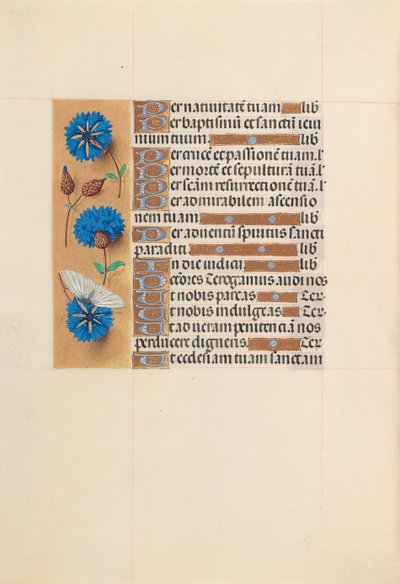 Per natiuitatē tuam lib
Per baptismū et sanctū ieiu
nium tuum lib
Per crucē et passionē tuam l'
Per mortē et sepulturā tuā l'
Per scām resurrectionē tuā l'
Per admirabilem ascensio
nem tuam lib
Per aduentū spiritus sancti
paracliti lib
In die iudicii lib
Peccatores Te rogamus audi nos
Vt nobis parcas Te r
Vt nobis indulgeas Te r
Vt ad ueram penitenciā nos
perducere digneris Te r
Vt ecclesiam tuam sanctam